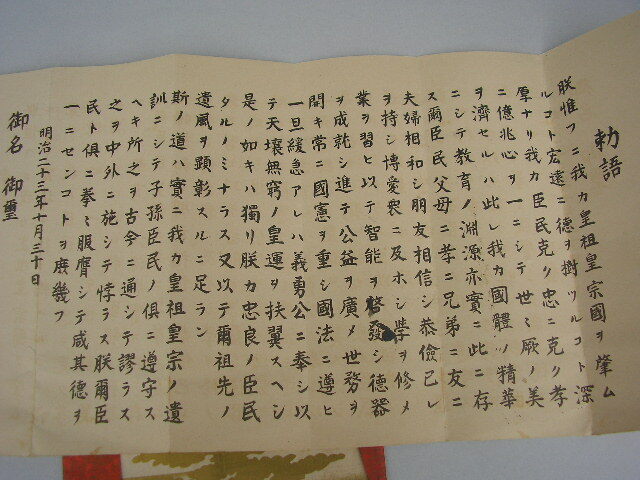 勅語
朕惟フニ我カ皇祖皇宗國ヲ肇ム
ルコト宏遠ニ德ヲ樹ツルコト深
厚ナリ我カ臣民克ク忠ニ克ク孝
ニ億兆心ヲ一ニシテ世ミ厥ノ美
ヲ濟セルハ此レ我カ國體ノ精華
ニシテ教育ノ淵源亦實ニ此ニ存
ス爾臣民父母ニ孝ニ兄弟ニ友ニ
夫婦相和シ朋友相信シ恭儉己レ
ヲ持シ博愛衆ニ及ホシ學ヲ修メ
業ヲ習ヒ以テ智能ヲ啓發シ德器
ヲ成就シ進テ公益ヲ廣メ世務ヲ
開キ常ニ國憲ヲ重シ國法ニ遵ヒ
一旦緩急アレハ義勇公ニ奉シ以
テ天壤無窮ノ皇運ヲ扶翼スヘシ
是ノ如キハ獨リ朕カ忠良ノ臣民
タルノミナラス又以テ爾祖先ノ
遺風ヲ顯彰スルニ足ラン
斯ノ道ハ實ニ我カ皇祖皇宗ノ遺
訓ニシテ子孫臣民ノ俱ニ遵守ス
ヘキ所之ヲ古今ニ通シテ謬ラス
之ヲ中外ニ施シテ悖ラス朕爾臣
民ト俱ニ拳ミ服膺シテ咸其德ヲ
一ニセンコトヲ庶幾フ
明治二十三年十月三十日
御名 御璽